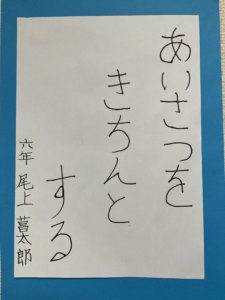 あいさつを
きちんと
する
六年 尾上 菖太郎